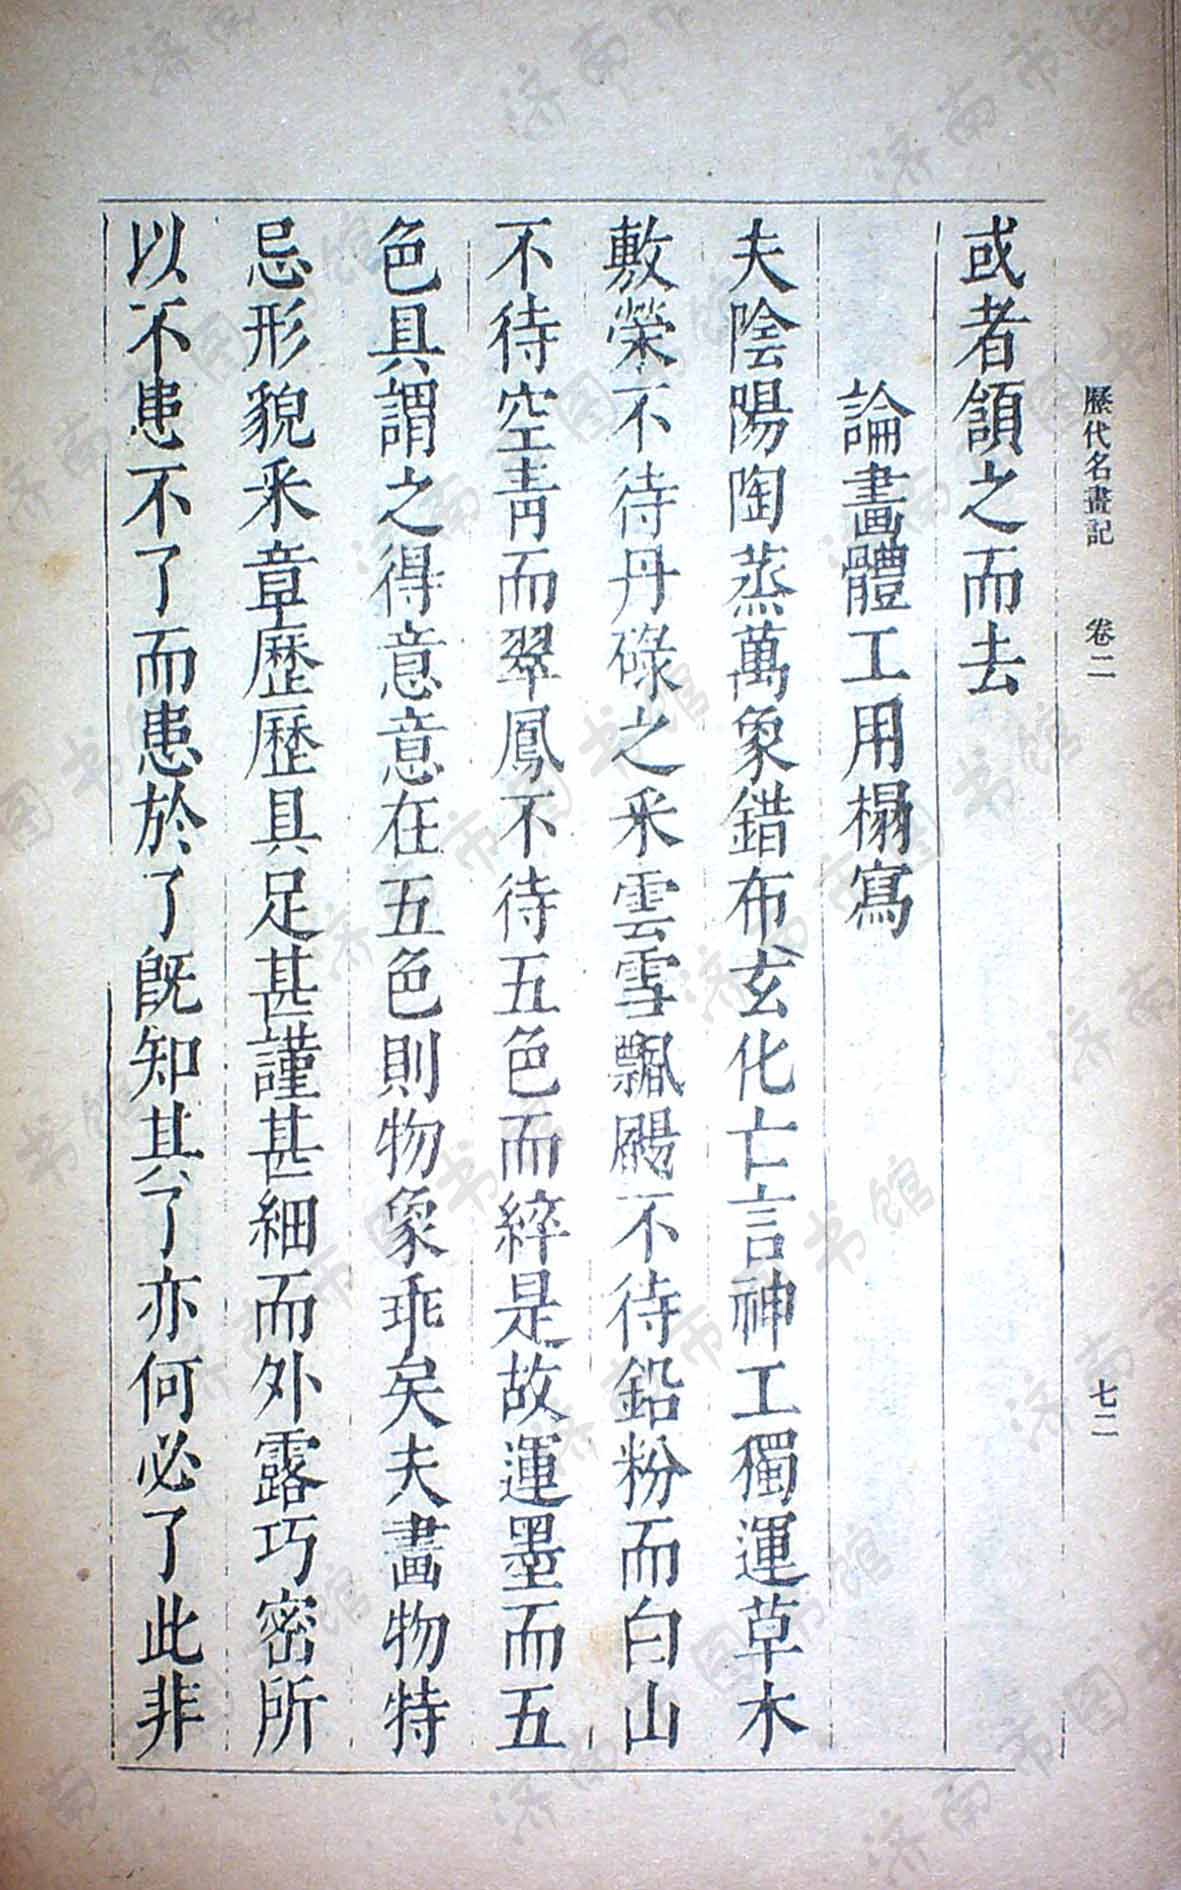 歷代名畫記　卷二　七二
或者頷之而去
論畫體工用榻寫
夫陰陽陶蒸萬象錯布玄化亡言神工獨運草木
敷榮不待丹碌之采雲雪飄颺不待鉛粉而白山
不待空青而翠鳳不待五色而綷是故運墨而五
色具謂之得意意在五色則物象乖矣夫畫物特
忌形貌采章歷歷具足甚謹甚細而外露巧密所
以不患不了而患於了既知其了亦何必了此非
济南市图书馆